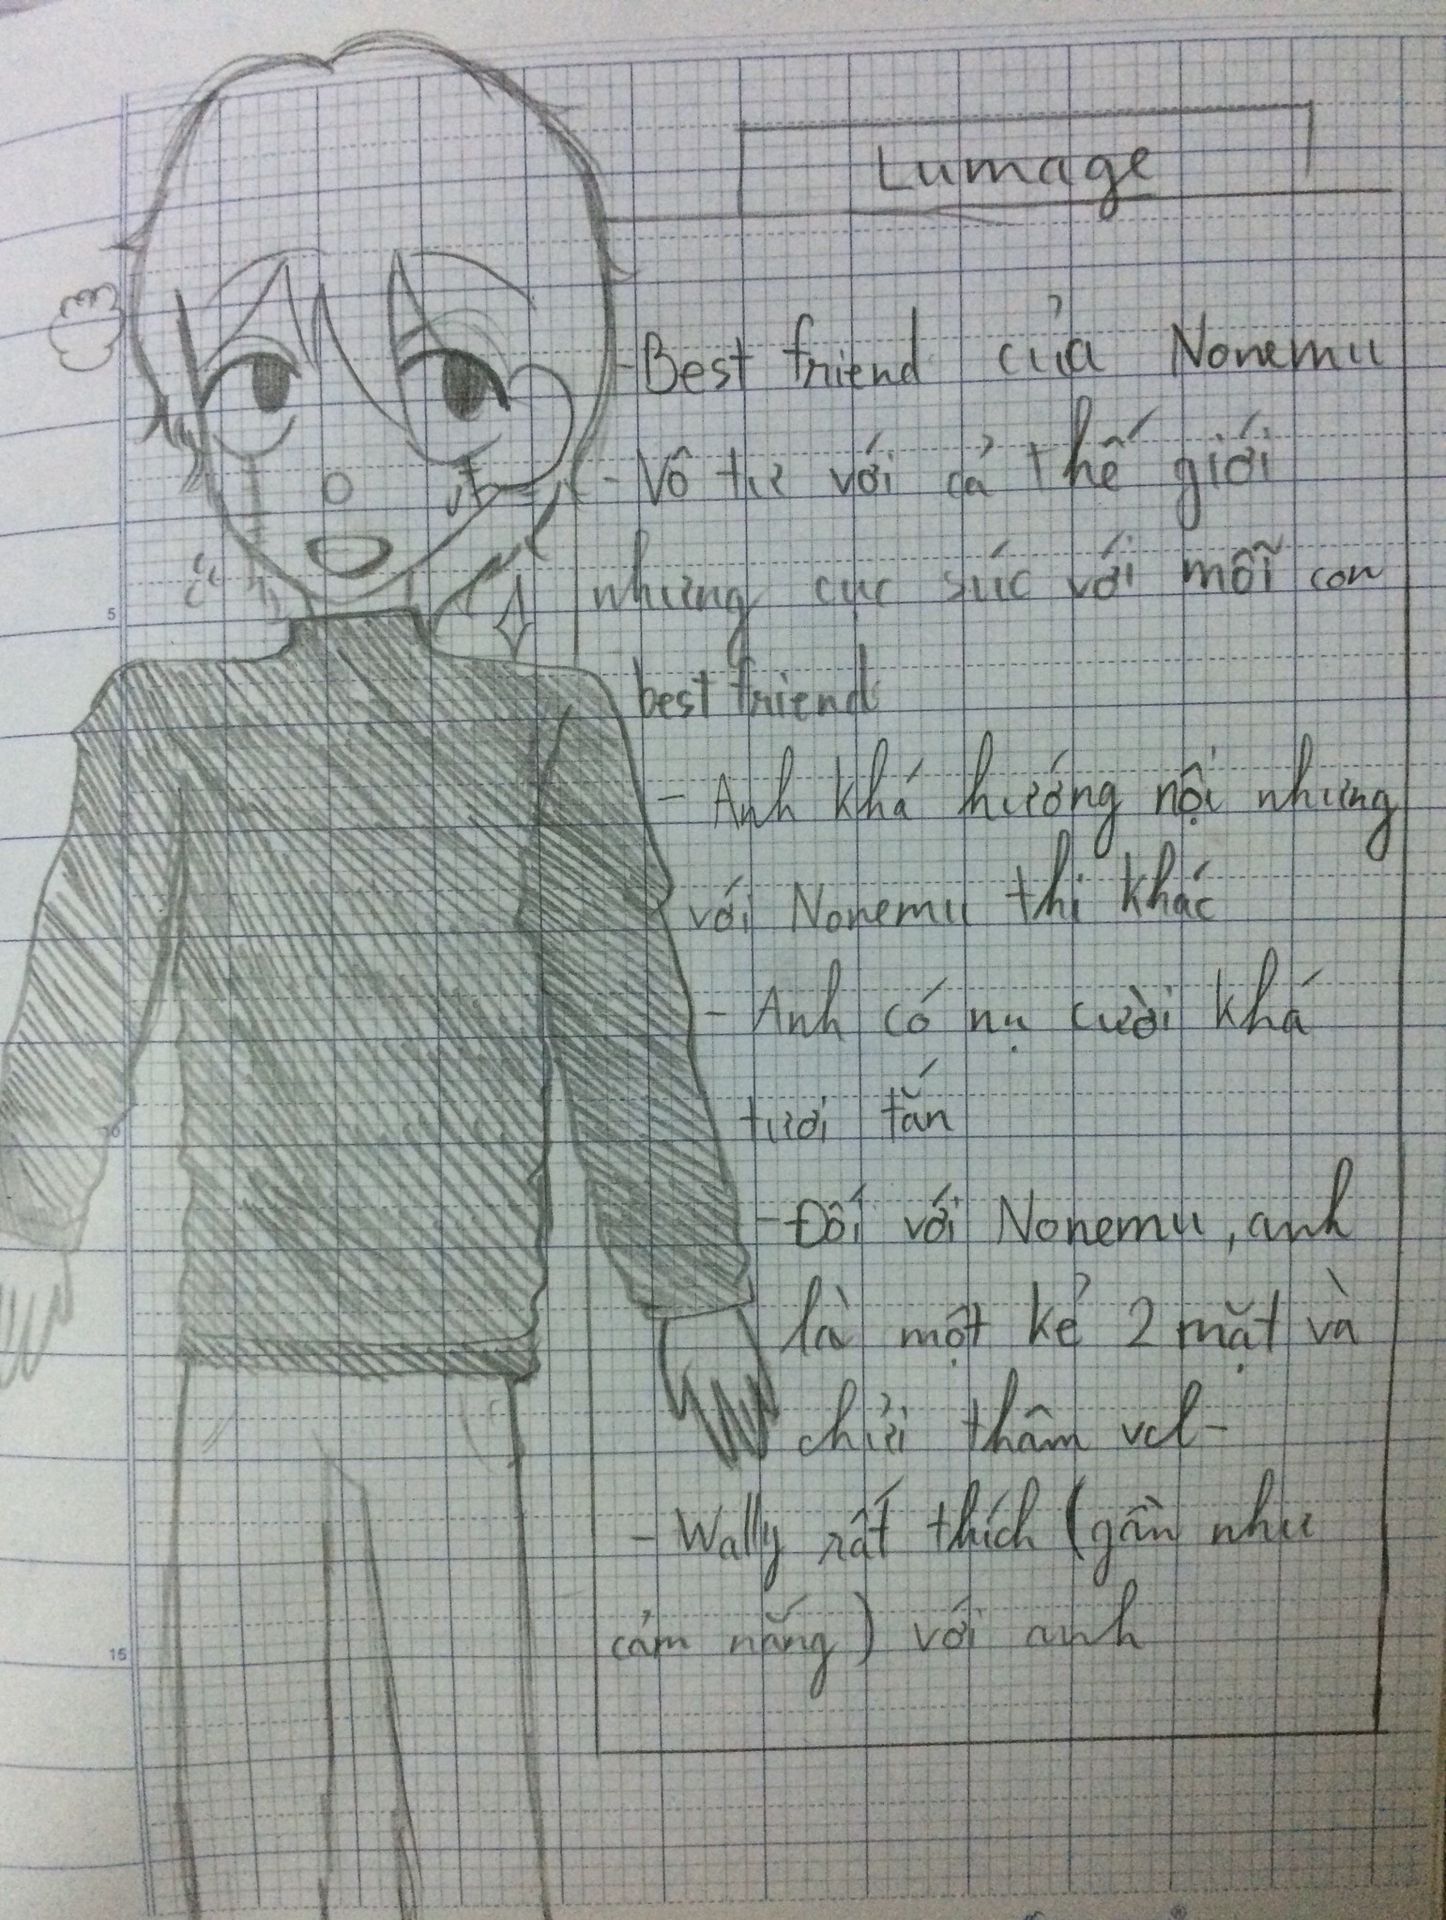 Lumage
- Best friend của Nonemu
- Vô tư với cả thế giới
nhưng cục súc với mỗi con
best friend
- Anh khá hướng nội nhưng
với Nonemu thì khác
- Anh có nụ cười khá
tươi tắn
- Đối với Nonemu, anh
là một kẻ 2 mặt và
chửi thâm vcl-
- Wally rất thích (gần như
cảm nắng) với anh
5
10
15